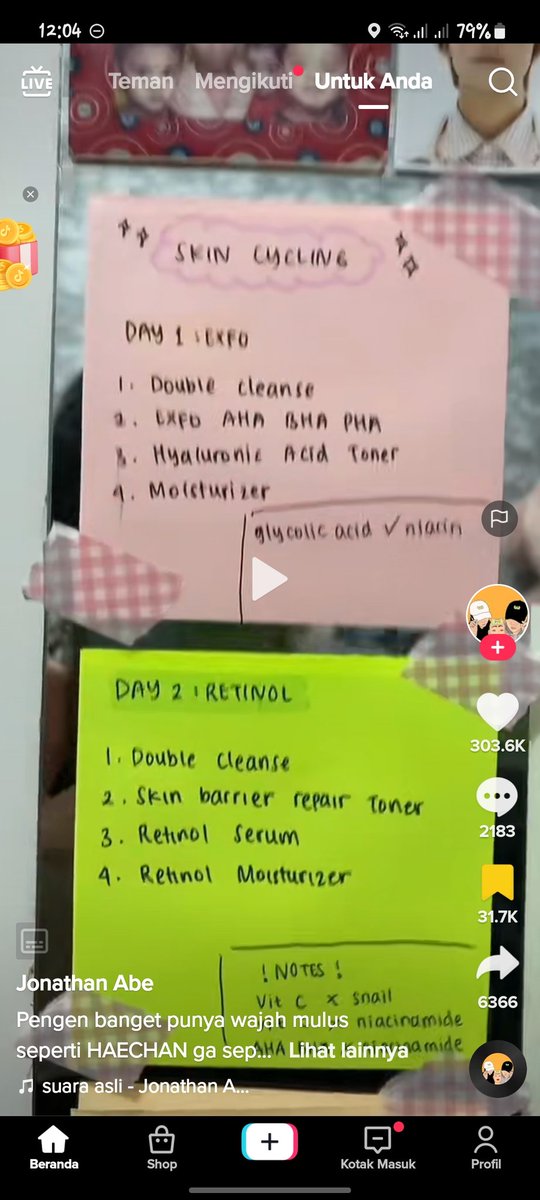 12:04
79%
LIVE
Teman Mengikuti Untuk Anda
SKIN CYCLING
DAY 1 : EXFO
1. Double cleanse
2. EXFO AHA BHA PHA
3. Hyaluronic Acid Toner
4. Moisturizer
glycolic acid ✓ niacin
DAY 2 : RETINOL
1. Double cleanse
2. Skin barrier repair Toner
3. Retinol Serum
4. Retinol Moisturizer
! NOTES !
Vit C x snail
niacinamide
303.6K
2183
31.7K
6366
Jonathan Abe
Pengen banget punya wajah mulus
seperti HAECHAN ga sep... Lihat lainnya
suara asli - Jonathan A...
Beranda Shop Kotak Masuk Profil